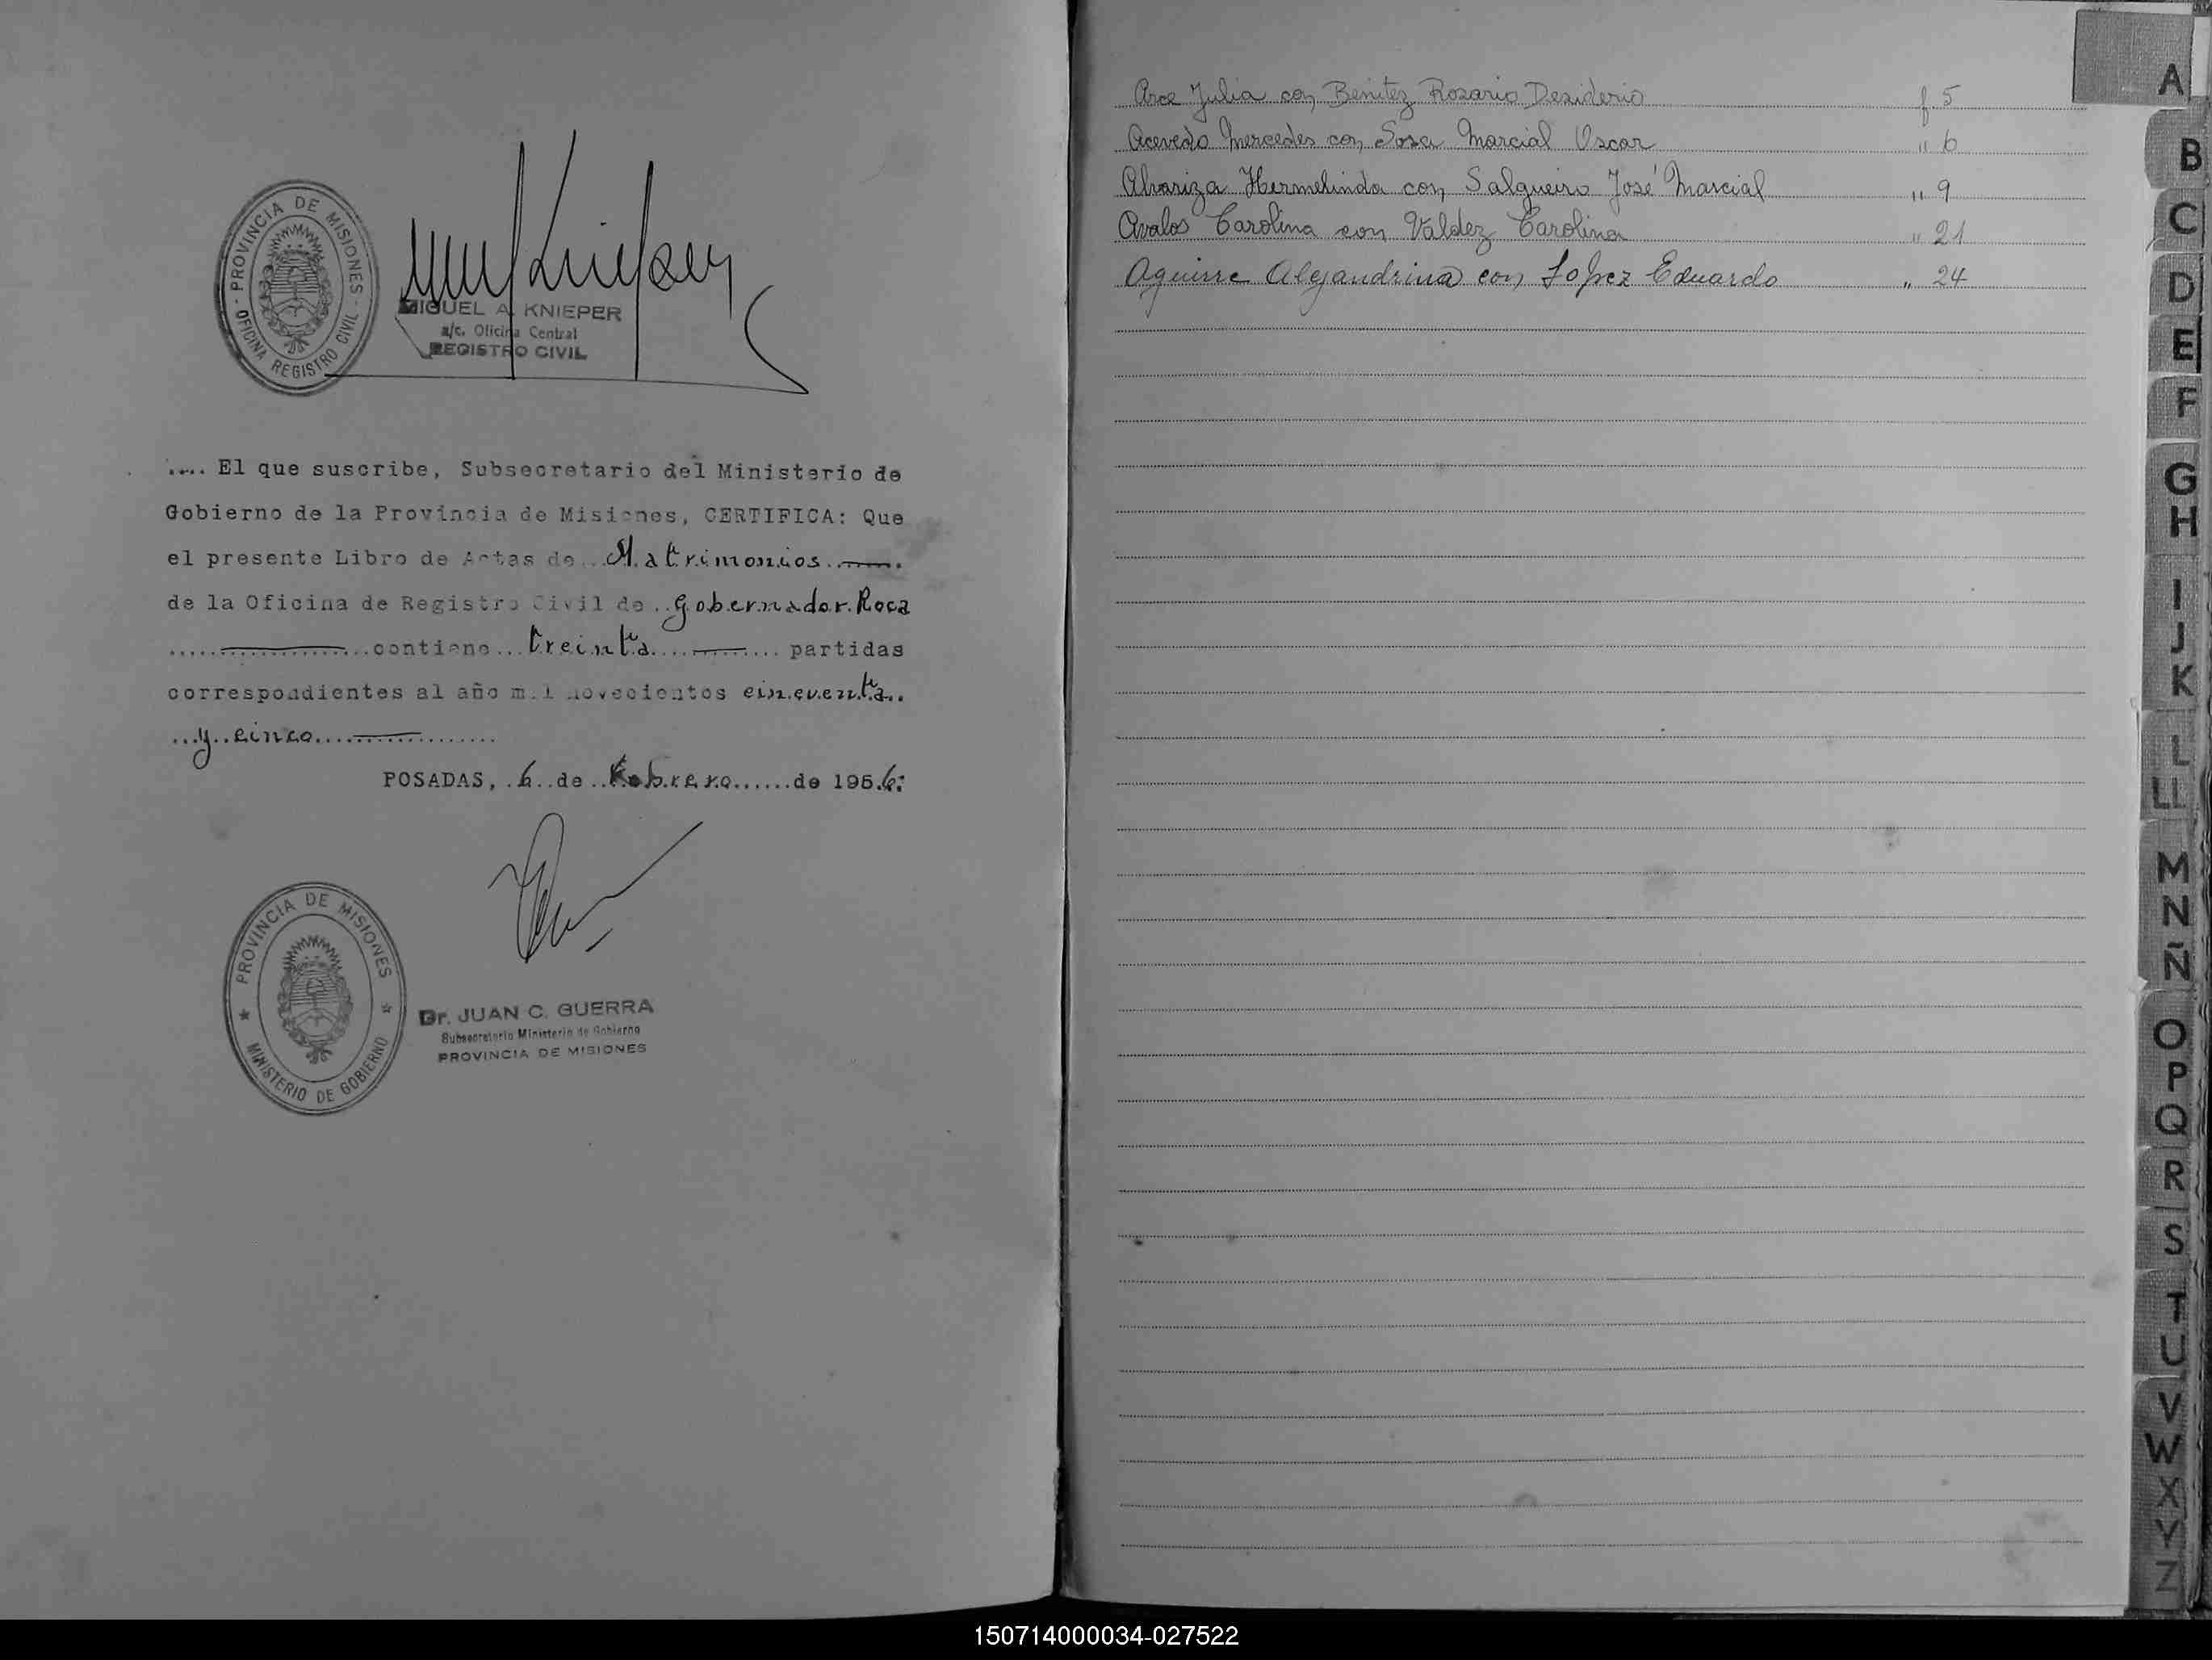 PROVINCIA DE MISIONES
- OFICINA REGISTRO CIVIL -
MIGUEL A. KNIEPER
a/c. Oficina Central
REGISTRO CIVIL
.... El que suscribe, Subsecretario del Ministerio de
Gobierno de la Provincia de Misiones, CERTIFICA: Que
el presente Libro de Actas de...Matrimonios.
de la Oficina de Registro Civil de..Gobernador.Roca
contiene...treinta.... partidas
correspondientes al año mil novecientos cincuenta..
...y..cinco....
POSADAS, .6..de..Febrero......de 1956.
PROVINCIA DE MISIONES
★ MINISTERIO DE GOBIERNO ★
Dr. JUAN C. GUERRA
Subsecretario Ministerio de Gobierno
PROVINCIA DE MISIONES
Arce Julia con Benitez Rosario Desiderio f 5
Acevedo Mercedes con Sosa Marcial Oscar " 6
Alvariza Hermelinda con Salgueiro José Marcial " 9
Avalos Carolina con Valdez Carolina " 21
Aguirre Alejandrina con Lopez Eduardo " 24
A
B
C
D
E
F
G
H
I
J
K
L
LL
M
N
Ñ
O
P
Q
R
S
T
U
V
W
X
Y
Z
150714000034-027522